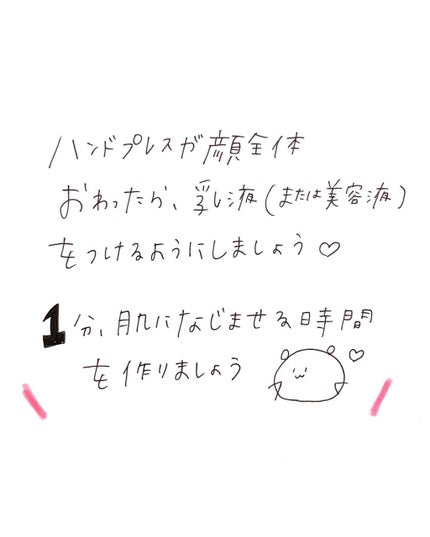 ハンドプレスが顔全体
おわったら、乳液(または美容液)
をつけるようにしましょう♡
1分、肌になじませる時間
を作りましょう